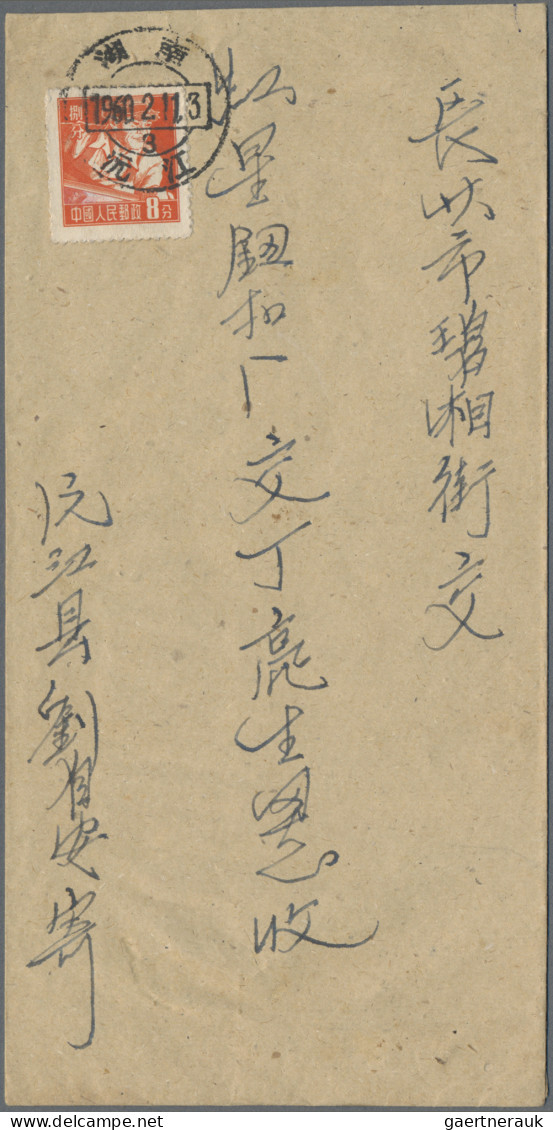 湖南
1960.2.11.3
3
沅江
捌分
中國人民郵政8分
長沙市碧湘街交
红星鈕扣厂交丁亮生恩收
沅江县劉有安寄
gaertnerauk